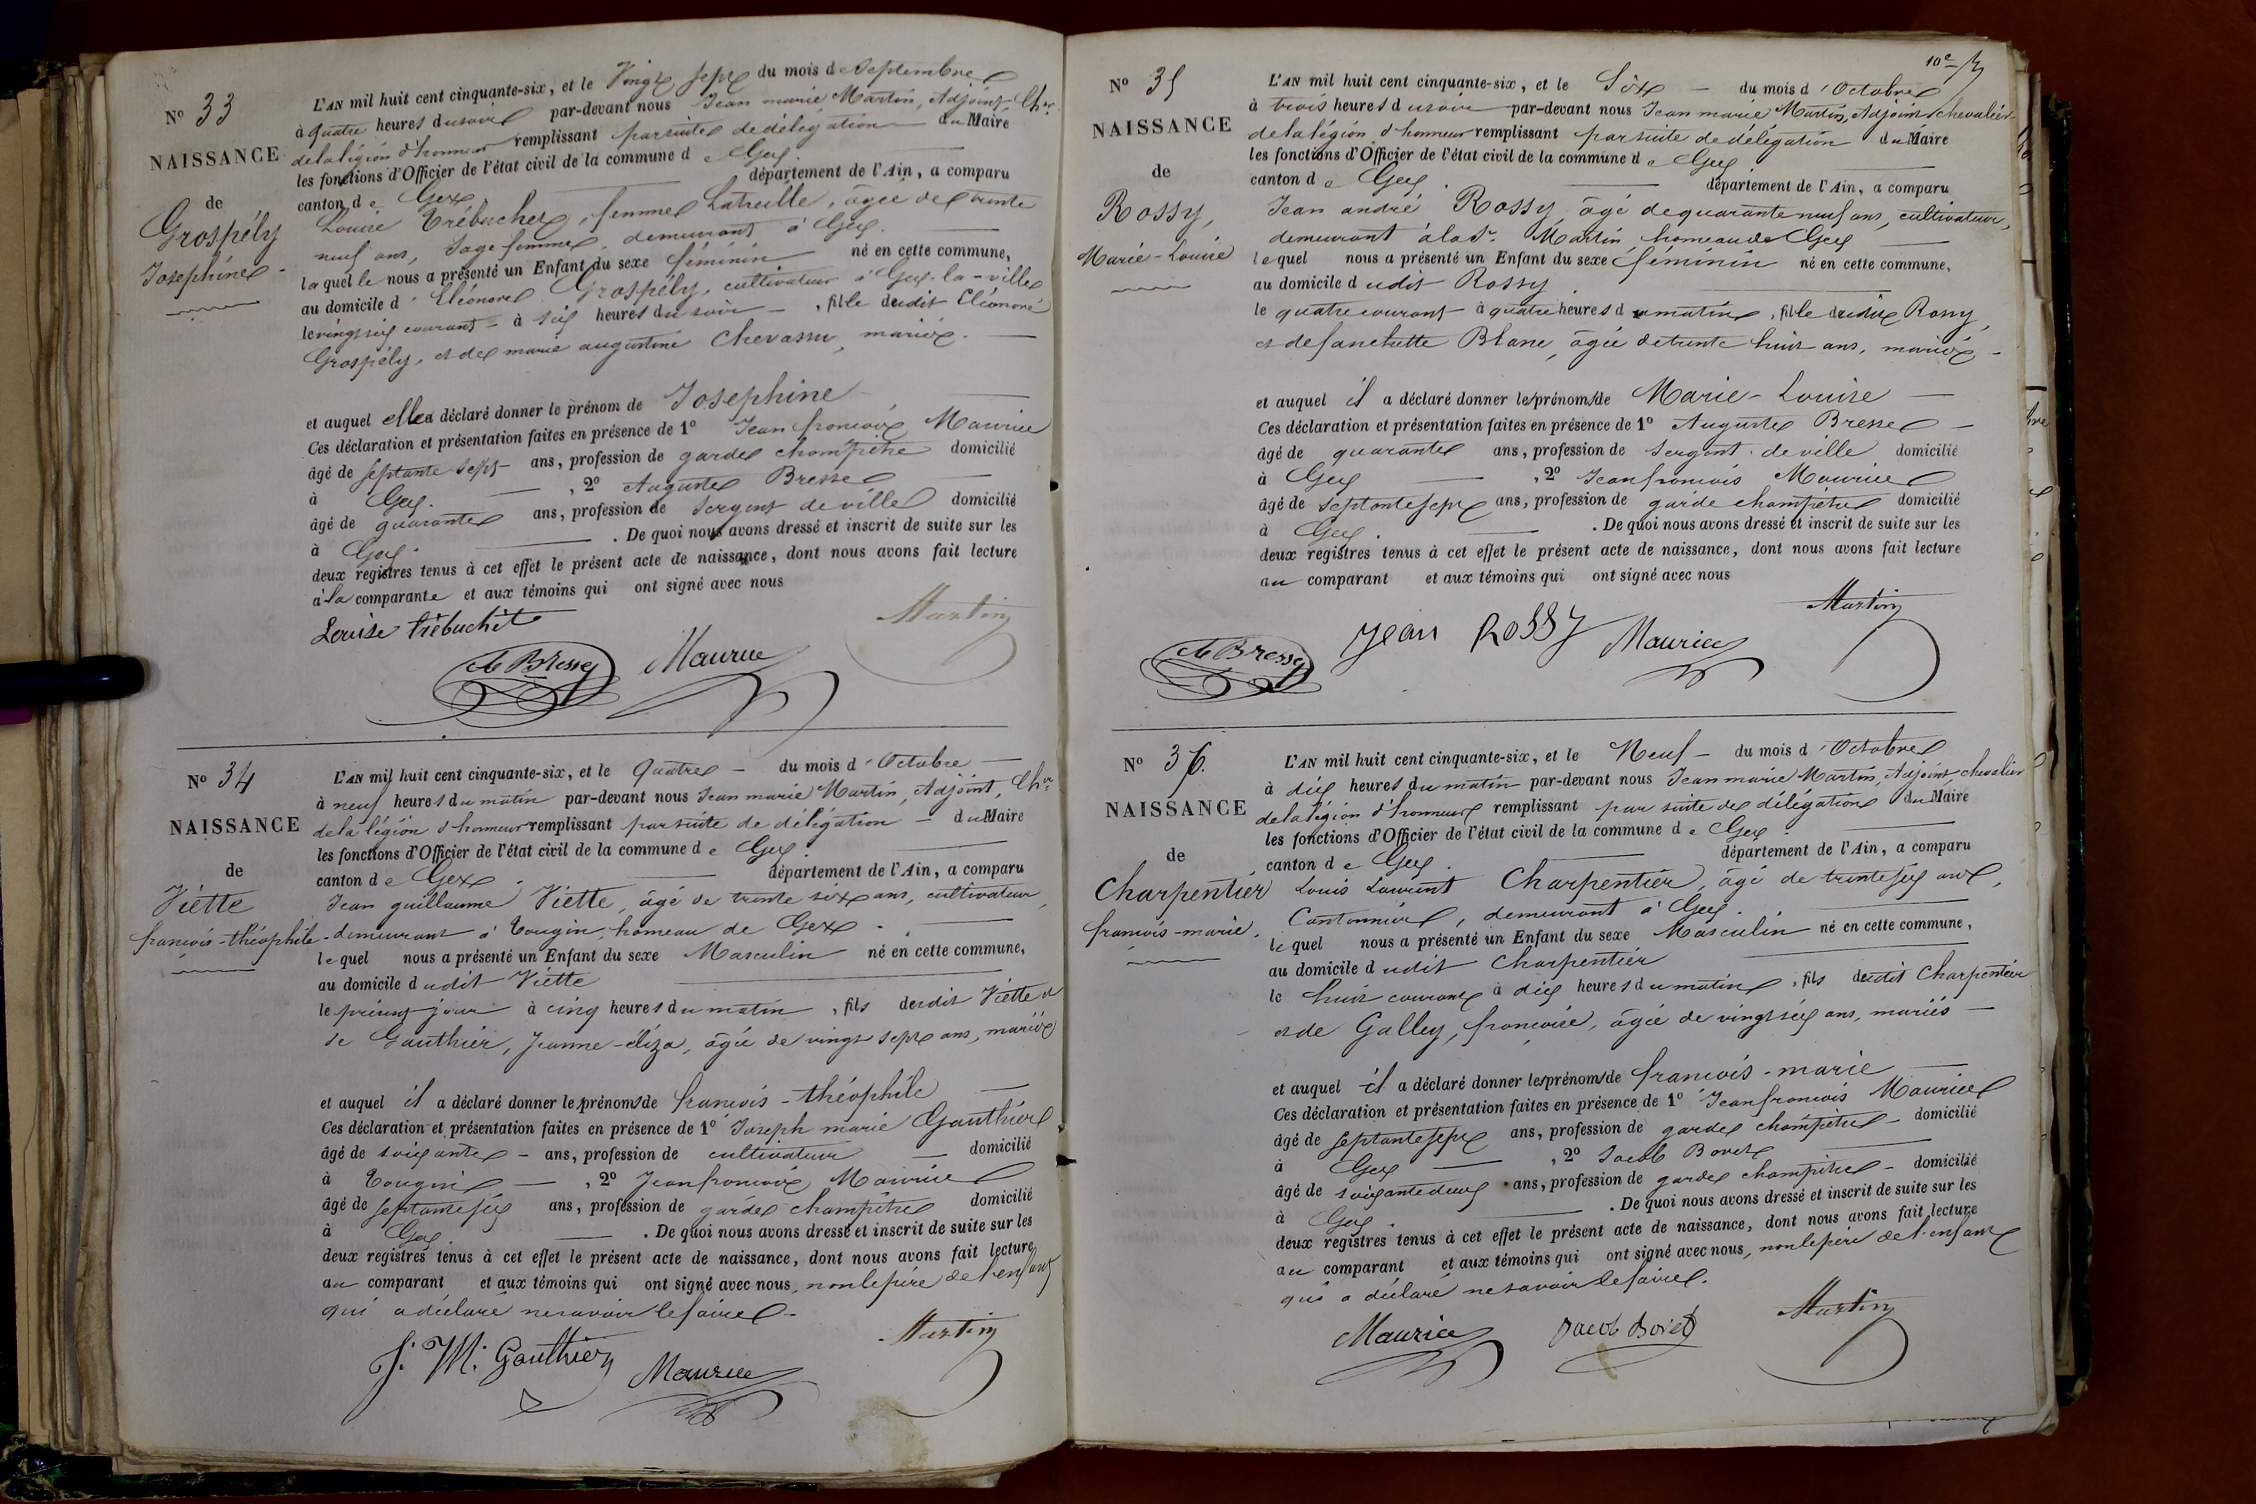 N° 33
NAISSANCE
de
Grospély
Josephine
L'AN mil huit cent cinquante-six, et le Vingt sept du mois de Septembre
à quatre heures du soir par-devant nous Jean marie Martin, Adjoint, Chr.
de la légion d'honneur remplissant par suite de délégation du Maire
les fonctions d'Officier de l'état civil de la commune de Gex.
canton de Gex département de l'Ain, a comparu
Louise Trébuchet, femme Latreille, âgée de trente
neuf ans, Sage femme, demeurant à Gex.
laquelle nous a présenté un Enfant du sexe féminin né en cette commune,
au domicile d'Eléonore Grospély, cultivateur à Gex-la-ville
le vingt six courant à six heures du soir, fille dudit Eléonore
Grospély, et de marie augustine Chevassu, mariés.
et auquel elle a déclaré donner le prénom de Josephine
Ces déclaration et présentation faites en présence de 1° Jean françois Maurice
âgé de septante sept ans, profession de garde champêtre domicilié
à Gex. , 2° Auguste Bresse
âgé de quarante ans, profession de Sergent de ville domicilié
à Gex. . De quoi nous avons dressé et inscrit de suite sur les
deux registres tenus à cet effet le présent acte de naissance, dont nous avons fait lecture
à la comparante et aux témoins qui ont signé avec nous
Louise trébuchet
Martin
Bresse Maurice
N° 34
NAISSANCE
de
Viette
françois-théophile
L'AN mil huit cent cinquante-six, et le quatre du mois d'Octobre
à neuf heures du matin par-devant nous Jean marie Martin, Adjoint, Chr.
de la légion d'honneur remplissant par suite de délégation du Maire
les fonctions d'Officier de l'état civil de la commune de Gex.
canton de Gex. département de l'Ain, a comparu
Jean guillaume Viette, âgé de trente six ans, cultivateur,
demeurant à Tougin, hameau de Gex.
lequel nous a présenté un Enfant du sexe Masculin né en cette commune,
au domicile dudit Viette
le présent jour à cinq heures du matin, fils dudit Viette et
de Gauthier, Jeanne-éliza, âgée de vingt sept ans, mariés
et auquel il a déclaré donner les prénoms de françois-théophile
Ces déclaration et présentation faites en présence de 1° Joseph marie Gauthier
âgé de soixante ans, profession de cultivateur domicilié
à Tougin , 2° Jean françois Maurice
âgé de septante six ans, profession de garde champêtre domicilié
à Gex. . De quoi nous avons dressé et inscrit de suite sur les
deux registres tenus à cet effet le présent acte de naissance, dont nous avons fait lecture
au comparant et aux témoins qui ont signé avec nous, non le père de l'enfant
qui a déclaré ne savoir le faire.
Martin
J. M. Gauthier Maurice
10e
N° 35
NAISSANCE
de
Rossy,
Marie-Louise
L'AN mil huit cent cinquante-six, et le Six du mois d'Octobre
à trois heures du soir par-devant nous Jean marie Martin, Adjoint, chevalier
de la légion d'honneur remplissant par suite de délégation du Maire
les fonctions d'Officier de l'état civil de la commune de Gex
canton de Gex. département de l'Ain, a comparu
Jean andré Rossy, âgé de quarante neuf ans, cultivateur,
demeurant à la St. Martin, hameau de Gex
lequel nous a présenté un Enfant du sexe féminin né en cette commune,
au domicile dudit Rossy.
le quatre courant à quatre heures du matin, fille dudit Rossy,
et de fanchette Blanc, âgée de trente huit ans, mariés
et auquel il a déclaré donner les prénoms de Marie-Louise
Ces déclaration et présentation faites en présence de 1° Auguste Bresse
âgé de quarante ans, profession de Sergent de ville domicilié
à Gex , 2° Jean françois Maurice
âgé de septante sept ans, profession de garde champêtre domicilié
à Gex. . De quoi nous avons dressé et inscrit de suite sur les
deux registres tenus à cet effet le présent acte de naissance, dont nous avons fait lecture
au comparant et aux témoins qui ont signé avec nous
Martin
Bresse jean Rossy Maurice
N° 36.
NAISSANCE
de
Charpentier
françois-marie.
L'AN mil huit cent cinquante-six, et le Neuf du mois d'Octobre
à dix heures du matin par-devant nous Jean marie Martin, Adjoint, chevalier
de la légion d'honneur remplissant par suite de délégation du Maire
les fonctions d'Officier de l'état civil de la commune de Gex.
canton de Gex. département de l'Ain, a comparu
Louis Laurent Charpentier, âgé de trente six ans,
Cantonnier, demeurant à Gex.
lequel nous a présenté un Enfant du sexe Masculin né en cette commune,
au domicile dudit Charpentier
le huit courant à dix heures du matin, fils dudit Charpentier
et de Galley, françoise, âgée de vingt six ans, mariés
et auquel il a déclaré donner les prénoms de françois-marie
Ces déclaration et présentation faites en présence de 1° Jean françois Maurice
âgé de septante sept ans, profession de garde champêtre domicilié
à Gex , 2° Jacob Bovet
âgé de soixante deux ans, profession de garde champêtre domicilié
à Gex. . De quoi nous avons dressé et inscrit de suite sur les
deux registres tenus à cet effet le présent acte de naissance, dont nous avons fait lecture
au comparant et aux témoins qui ont signé avec nous, non le père de l'enfant
qui a déclaré ne savoir le faire.
Martin
Maurice Jacob Bovet